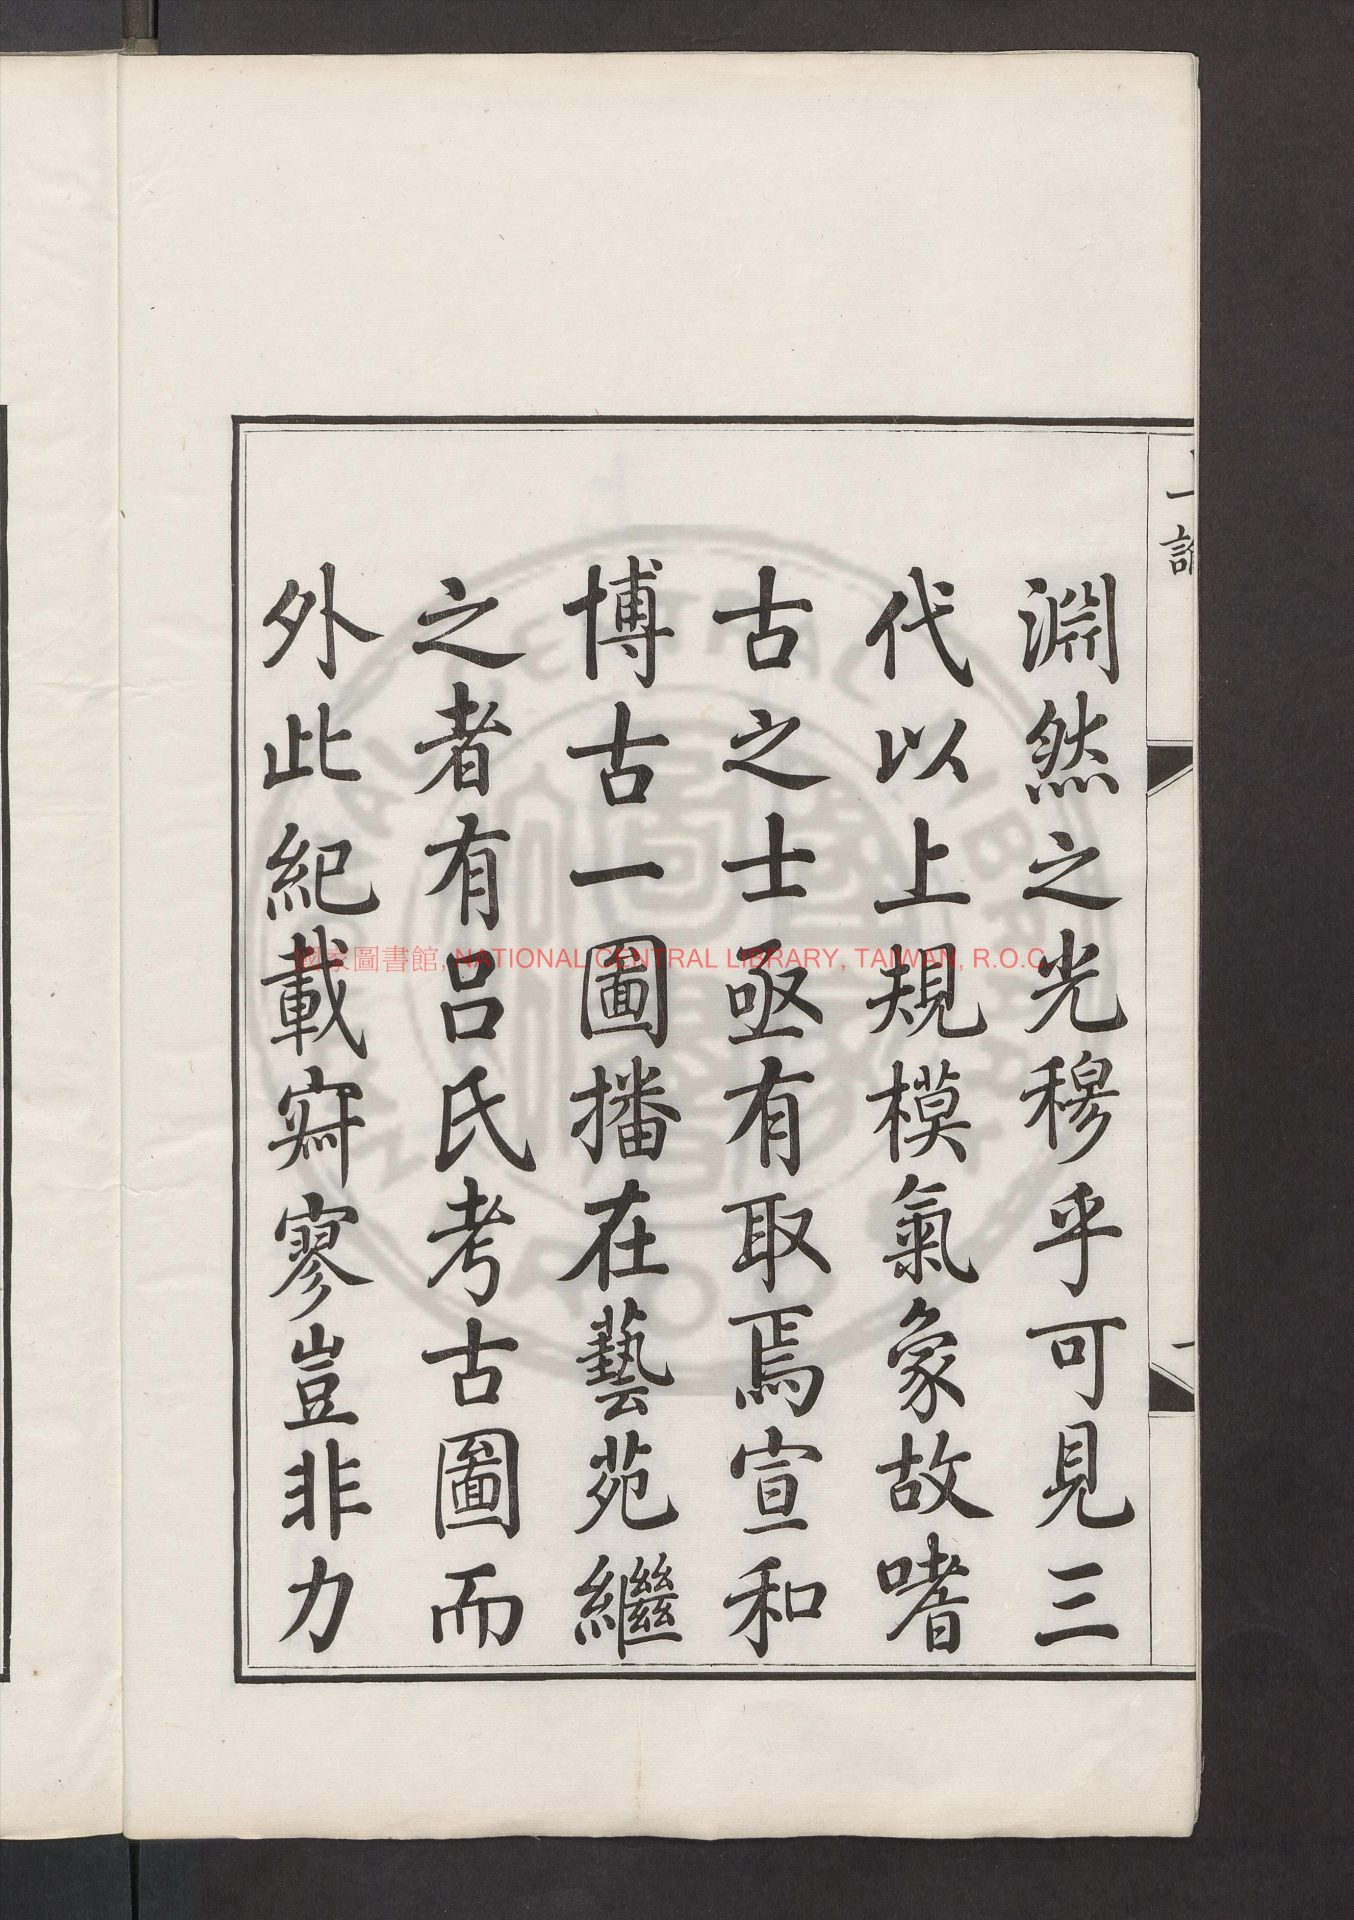 淵然之光穆乎可見三
代以上規模氣象故嗜
古之士亟有取焉宣和
博古一圖播在藝苑繼
之者有呂氏考古圖而
外此紀載寂寥豈非力
上諭
一
國家圖書館, NATIONAL CENTRAL LIBRARY, TAIWAN, R.O.C